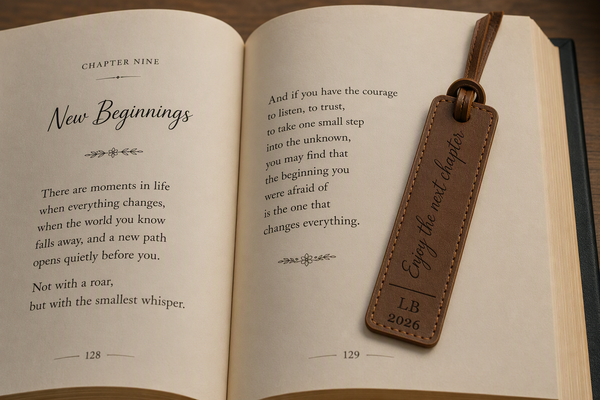 CHAPTER NINE
New Beginnings
There are moments in life
when everything changes,
when the world you know
falls away, and a new path
opens quietly before you.
Not with a roar,
but with the smallest whisper.
128
And if you have the courage
to listen, to trust,
to take one small step
into the unknown,
you may find that
the beginning you
were afraid of
is the one that
changes everything.
129
Enjoy the next chapter
LB
2026